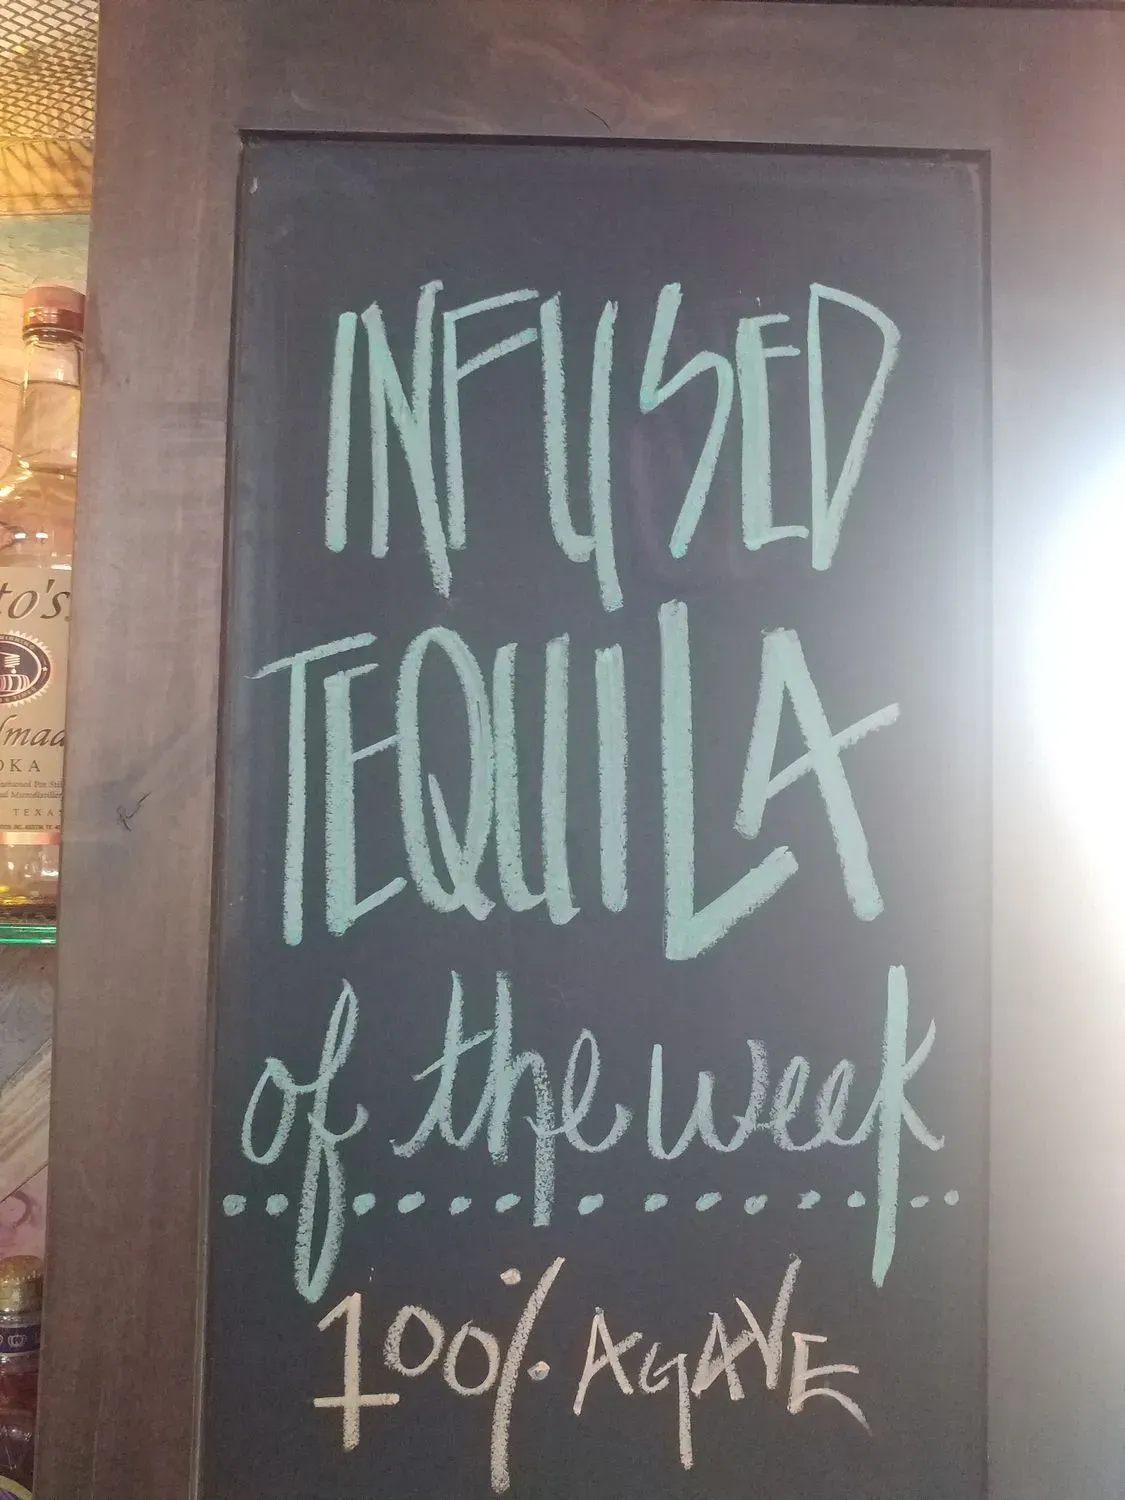 INFUSED
TEQUILA
of the week
100% AGAVE
to's
dmad
OKA
TEXAS